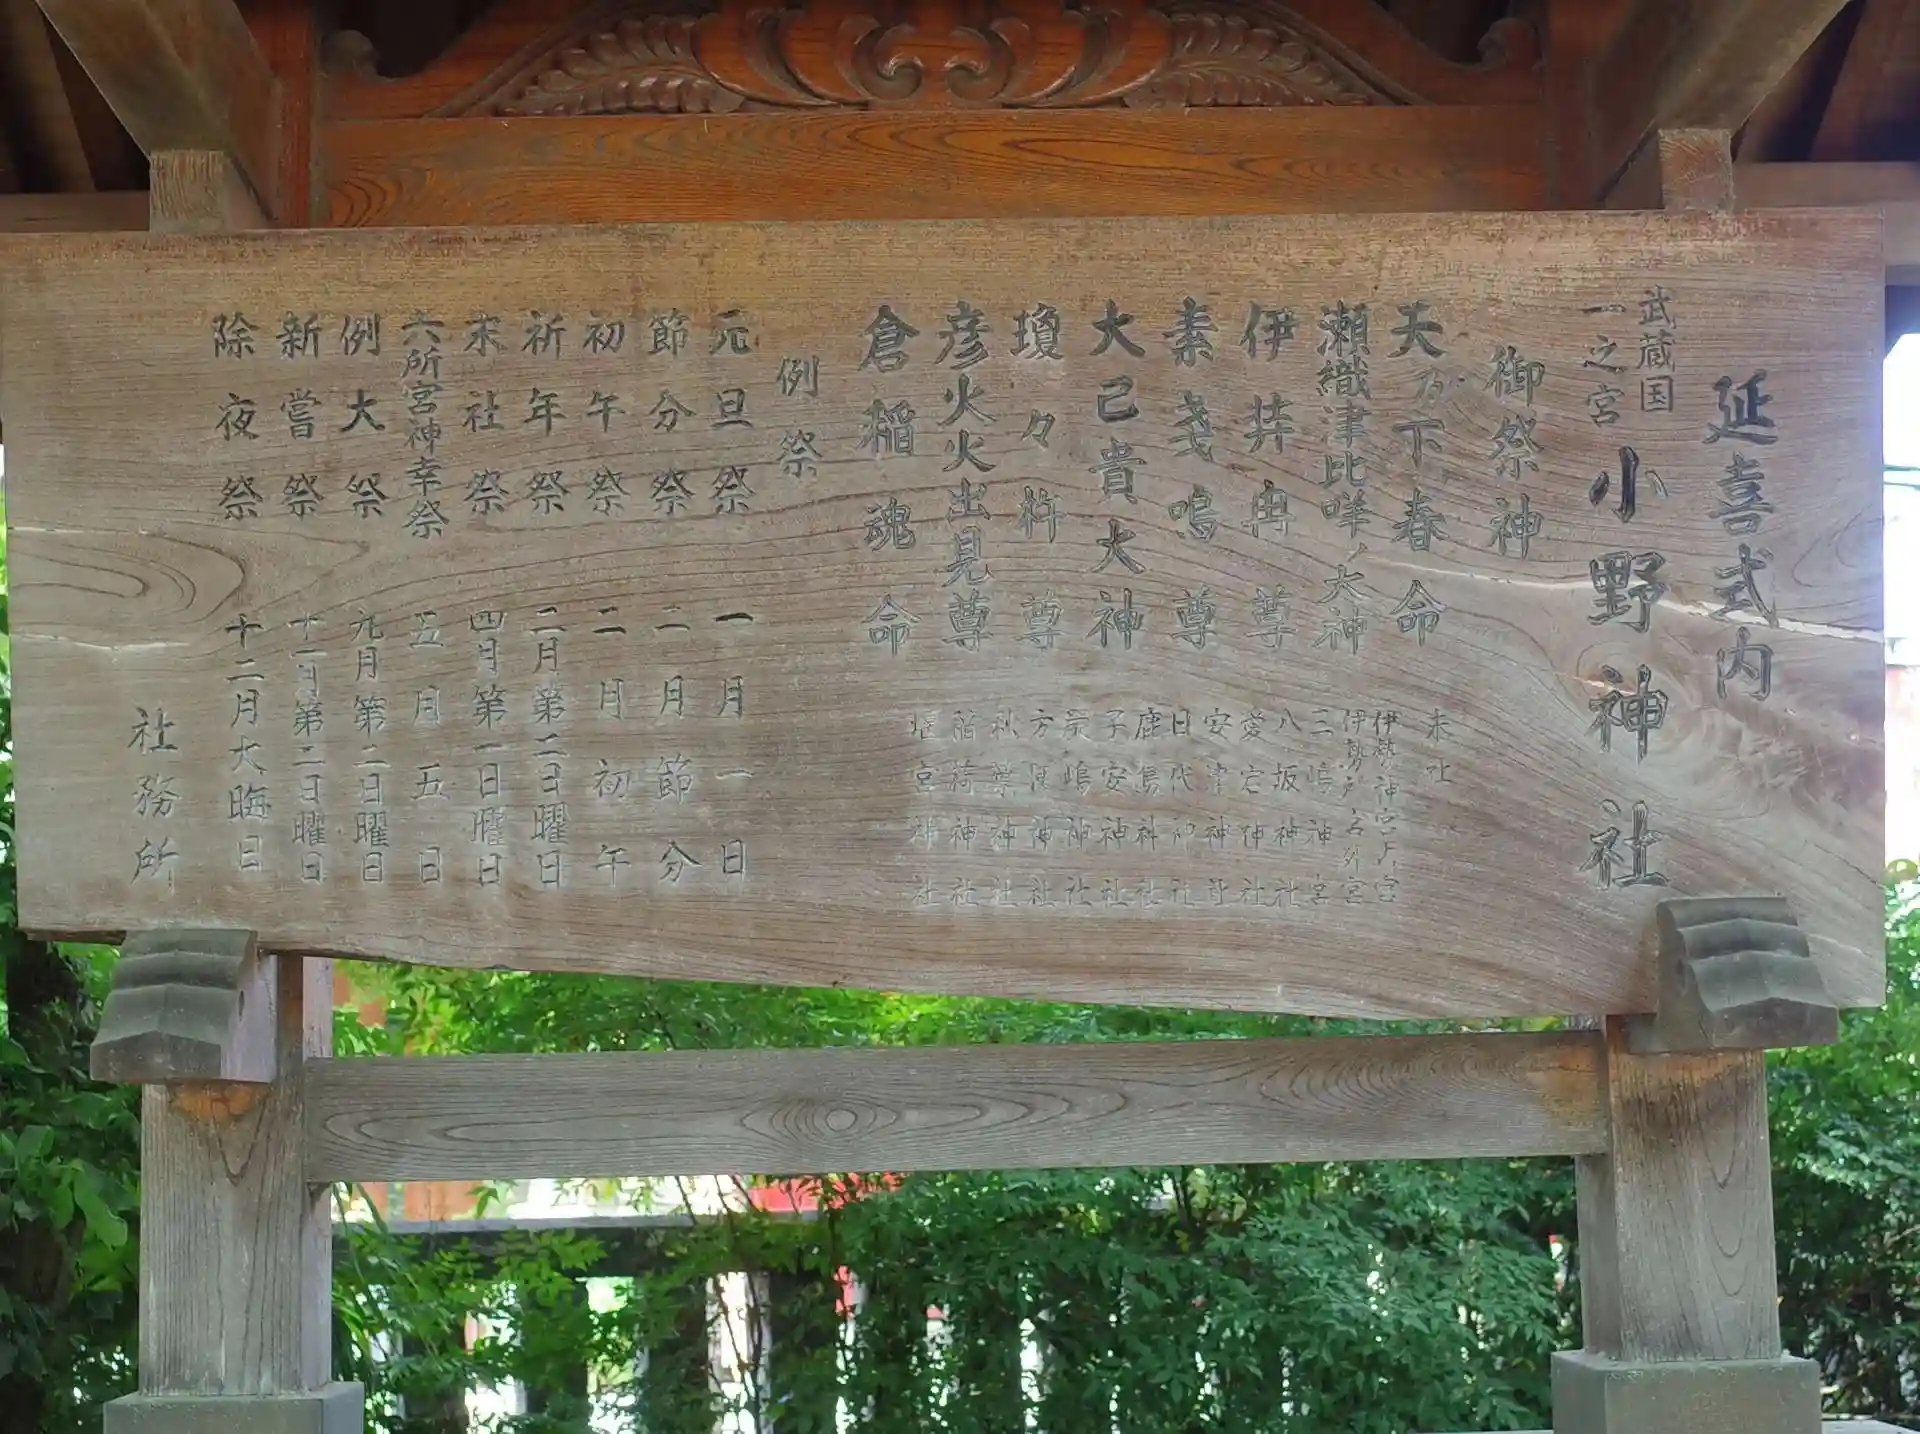 延喜式内
武蔵国
一之宮
小野神社
御祭神
天乃下春命
瀬織津比咩ノ大神
伊弉冉尊
素戔嗚尊
大己貴大神
瓊々杵尊
彦火火出見尊
倉稲魂命
末社
伊勢神宮内宮
三嶋神宮
八坂神社
愛宕神社
安津神社
日代神社
鹿島神社
子安神社
稲荷神社
堰宮神社
例祭
元旦祭 一月一日
節分祭 二月節分
初午祭 二月初午
祈年祭 二月第二日曜日
末社祭 四月第一日曜日
六所宮神幸祭 五月五日
例大祭 九月第二日曜日
新嘗祭 十一月第二日曜日
除夜祭 十二月大晦日
社務所